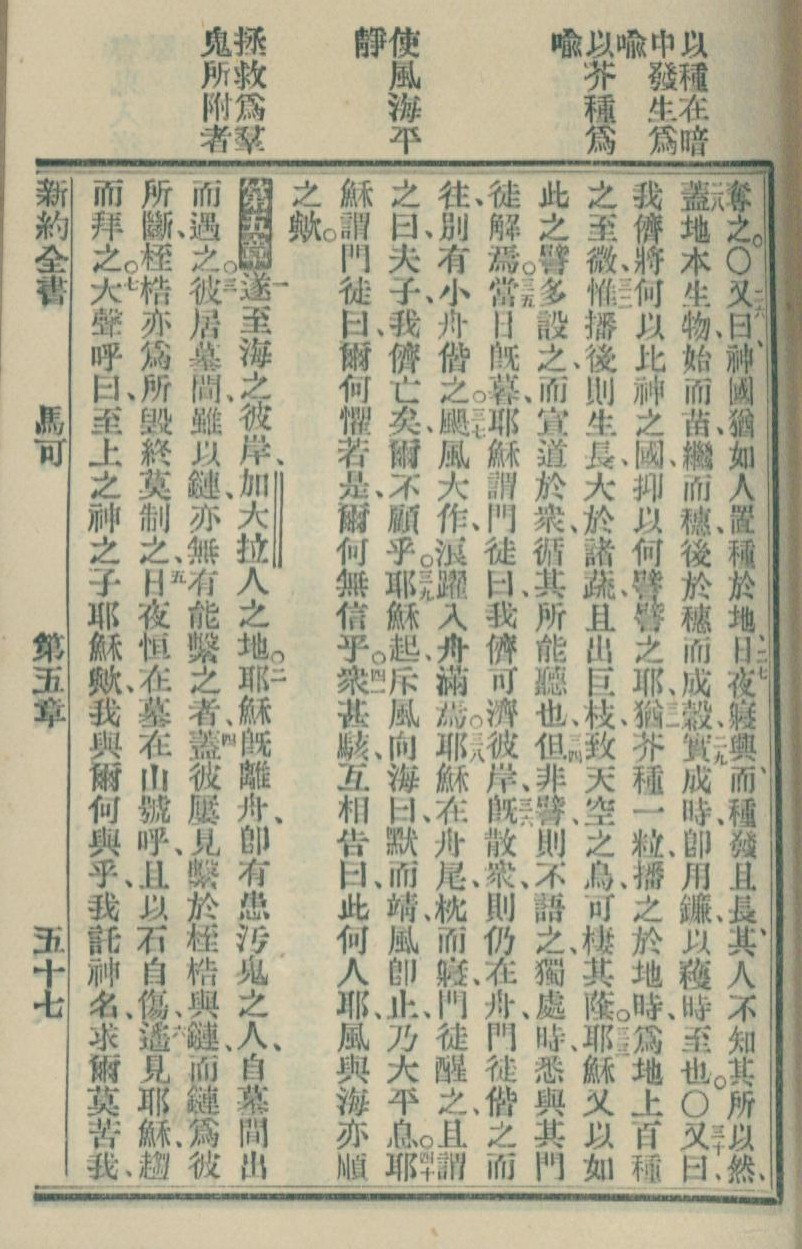 以種在暗
中發生爲
喩
以芥種爲
喩
使風海平
靜
拯救爲羣
鬼所附者
奪之。○二六又曰、神國猶如人置種於地、二七日夜寢興、而種發且長、其人不知其所以然、
二八蓋地本生物、始而苗、繼而穗、後於穗而成穀、二九實成時、卽用鐮以穫、時至也。○三十又曰、
我儕將何以比神之國、抑以何譬譬之耶、三一猶芥種一粒、播之於地時、爲地上百種
之至微、三二惟播後則生長、大於諸蔬、且出巨枝、致天空之鳥、可棲其蔭。三三耶穌又以如
此之譬多設之、而宣道於衆、循其所能聽也、三四但非譬則不語之、獨處時、悉與其門
徒解焉。三五當日旣暮、耶穌謂門徒曰、我儕可濟彼岸、三六旣散衆、則仍在舟、門徒偕之而
往、別有小舟偕之。三七颶風大作、浪躍入舟滿焉。三八耶穌在舟尾、枕而寢、門徒醒之、且謂
之曰、夫子、我儕亡矣、爾不顧乎。三九耶穌起、斥風向海曰、默而靖、風卽止、乃大平息。四十耶
穌謂門徒曰、爾何懼若是、爾何無信乎。四一衆甚駭、互相告曰、此何人耶、風與海亦順
之歟。
第五章一遂至海之彼岸、加大拉人之地。二耶穌旣離舟、卽有患汚鬼之人、自墓間出
而遇之。三彼居墓間、雖以鏈、亦無有能繫之者、四蓋彼屢見繫於桎梏與鏈、而鏈爲彼
所斷、桎梏亦爲所毀、終莫制之、五日夜恒在墓在山號呼、且以石自傷、六遙見耶穌、趨
而拜之。七大聲呼曰、至上之神之子耶穌歟、我與爾何與乎、我託神名、求爾莫苦我、
新約全書 馬可 第五章 五十七